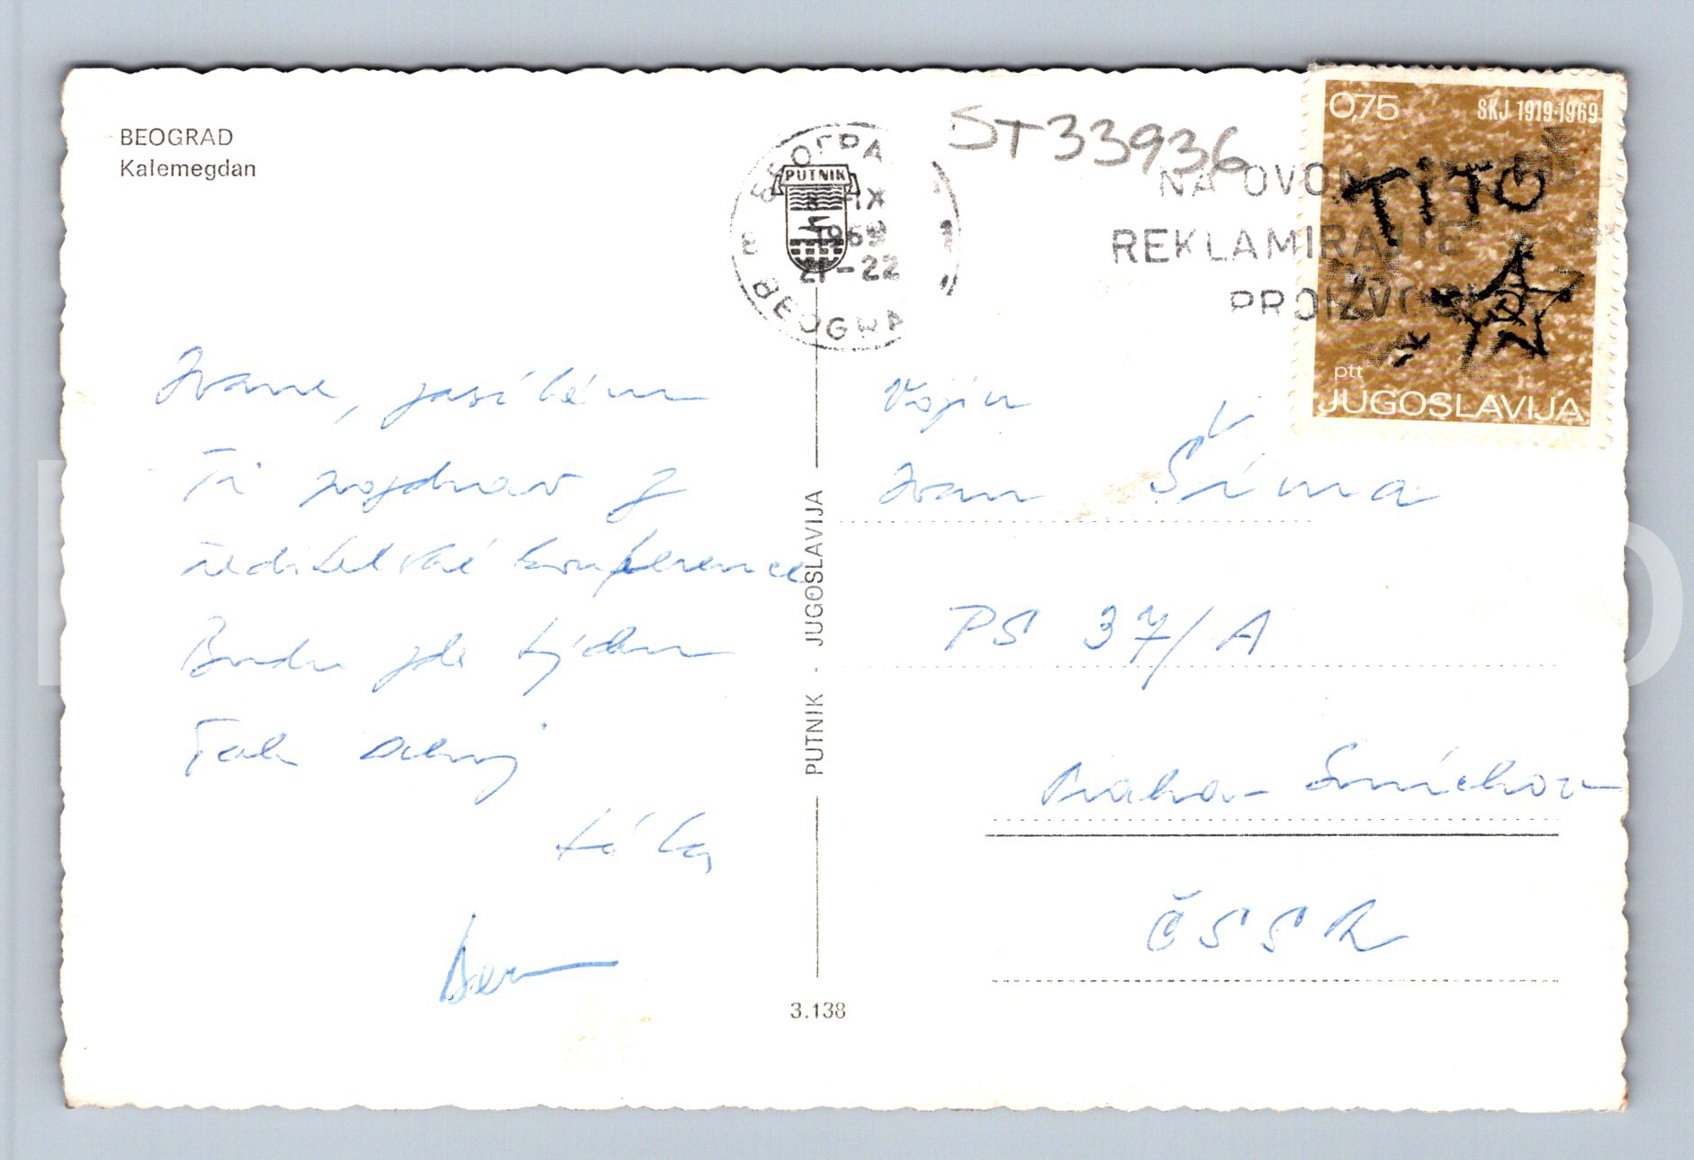 BEOGRAD
Kalemegdan
ST33936
БЕОГРА
PUTNIK
IX
1969
21-22
BEOGRA
NA OVOM
REKLAMIRAJTE
PROIZVO
0,75
SKJ 1919·1969
TITO
ptt
JUGOSLAVIJA
Ivane, posílám
Ti pozdrav z
ředitelské konference
Budu zde týden
Tak ahoj
PUTNIK - JUGOSLAVIJA
3.138
Vojín
Ivan Šíma
PS 37/A
Praha - Smíchov
ČSSR